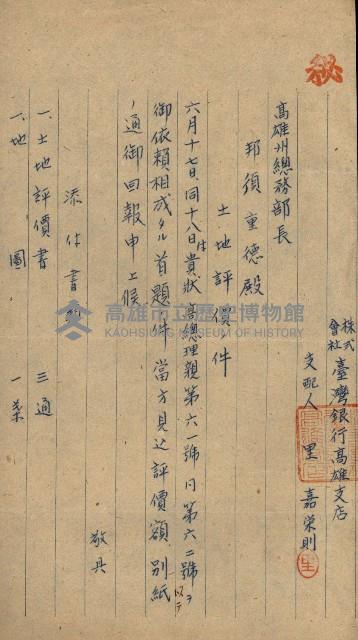 秘
株式
會社 臺灣銀行高雄支店
支配人 里 嘉栄則
高雄州總務部長
邦須重德殿
土地評價ノ件
六月十七日、同十八日付貴狀高總理親第六一號同第六二號ヲ以テ
御依賴相成タル首題ノ件當方見込評價額別紙
ノ通御回報申上候
敬具
添付書類
一、土地評價書 三通
一、地圖 一葉
高雄市立歷史博物館
KAOHSIUNG MUSEUM OF HISTORY